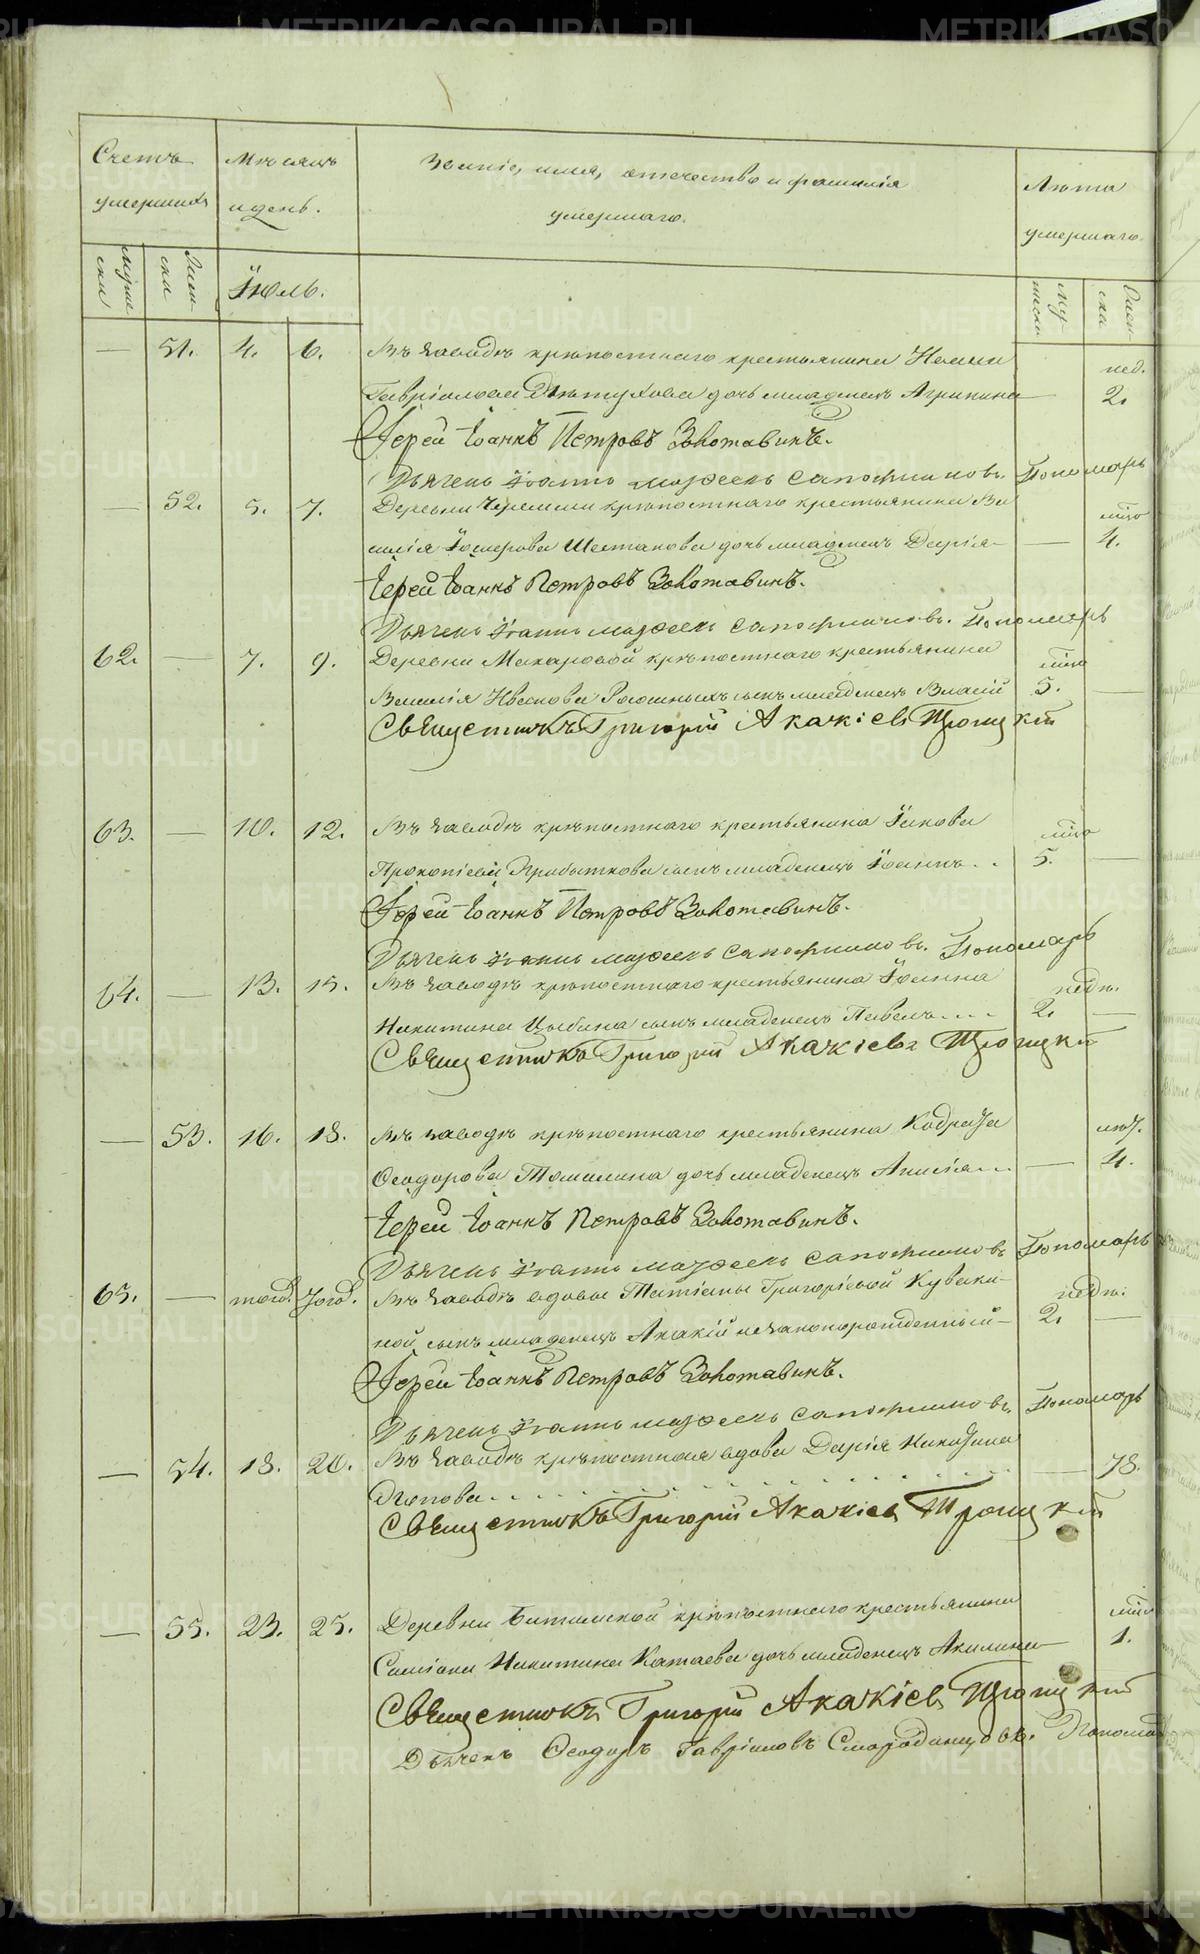 METRIKI.GASO-URAL.RU
Счетъ умершихъ
Мѣсяцъ и день.
Званіе, имя, отечество и фамилія
умершаго.
Лѣта умершаго.
Муже ска
Жен ска
Іюль.
Му жеска
Жен ска
— 51. 4. 6. Въ Заводѣ крѣпостнаго крестьянина
Гавріилова дочь младенецъ Агрипина — нед. 2.
Іерей Іоаннъ Петровъ Золотавинъ.
Дьячекъ Іоаннъ Сапожниковъ. Пономарь
— 52. 5. 7. Деревни Черемши крѣпостнаго крестьянина Ва
силія Шестакова дочь младенецъ Дарія — мѣс 4.
Іерей Іоаннъ Петровъ Золотавинъ.
Дьячекъ Іоаннъ Сапожниковъ. Пономарь
62. — 7. 9. Деревни Макаровой крѣпостнаго крестьянина
Василія сынъ младенецъ Власій мѣс 5. —
Священникъ Григорій Акакіевъ Троицкій
63. — 10. 12. Въ Заводѣ крѣпостнаго крестьянина Іакова
Прокопіева Прибыткова сынъ младенецъ Іоаннъ.. мѣс 5. —
Іерей Іоаннъ Петровъ Золотавинъ.
Дьячекъ Іоаннъ Сапожниковъ. Пономарь
64. — 13. 15. Въ Заводѣ крѣпостнаго крестьянина Іоанна
Никитина Цыбина сынъ младенецъ Павелъ.... недѣ. 2. —
Священникъ Григорій Акакіевъ Троицкій
— 53. 16. 18. Въ заводѣ крѣпостнаго крестьянина Кодрата
Ѳеодорова Томилина дочь младенецъ — 4.
Іерей Іоаннъ Петровъ Золотавинъ.
Дьячекъ Іоаннъ Сапожниковъ Пономарь
65. — тогоже. Въ Заводѣ вдовы Татіаны Григорьевой Куваки-
ной сынъ младенецъ Акакій незаконорожденный — недѣ. 2. —
Іерей Іоаннъ Петровъ Золотавинъ.
Дьячекъ Іоаннъ Сапожниковъ Пономарь
— 54. 18. 20. Въ Заводѣ крѣпостная вдова Дарія
— 78.
Священникъ Григорій Акакіевъ Троицкій
— 55. 23. 25. Деревни Битимской крѣпостнаго крестьянина
Никитина Катаева дочь младенецъ Акилина — мѣс 1.
Священникъ Григорій Акакіевъ Троицкій
Дьячекъ Ѳеодоръ Гавріиловъ Смородинцовъ. Пономар